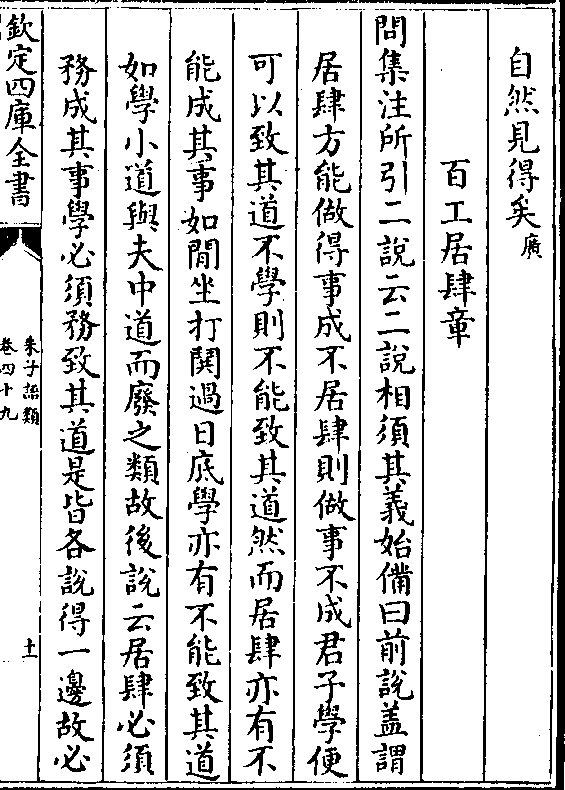 自然見得矣廣
百工居肆章
問集注所引二說云二說相須其義始備曰前說盖謂
居肆方能做得事成不居肆則做事不成君子學便
可以致其道不學則不能致其道然而居肆亦有不
能成其事如閒坐打鬨過日底學亦有不能致其道
如學小道與夫中道而廢之類故後說云居肆必須
務成其事學必須務致其道是皆各說得一邊故必
欽定四庫全書
朱子語類
卷四十九
十一